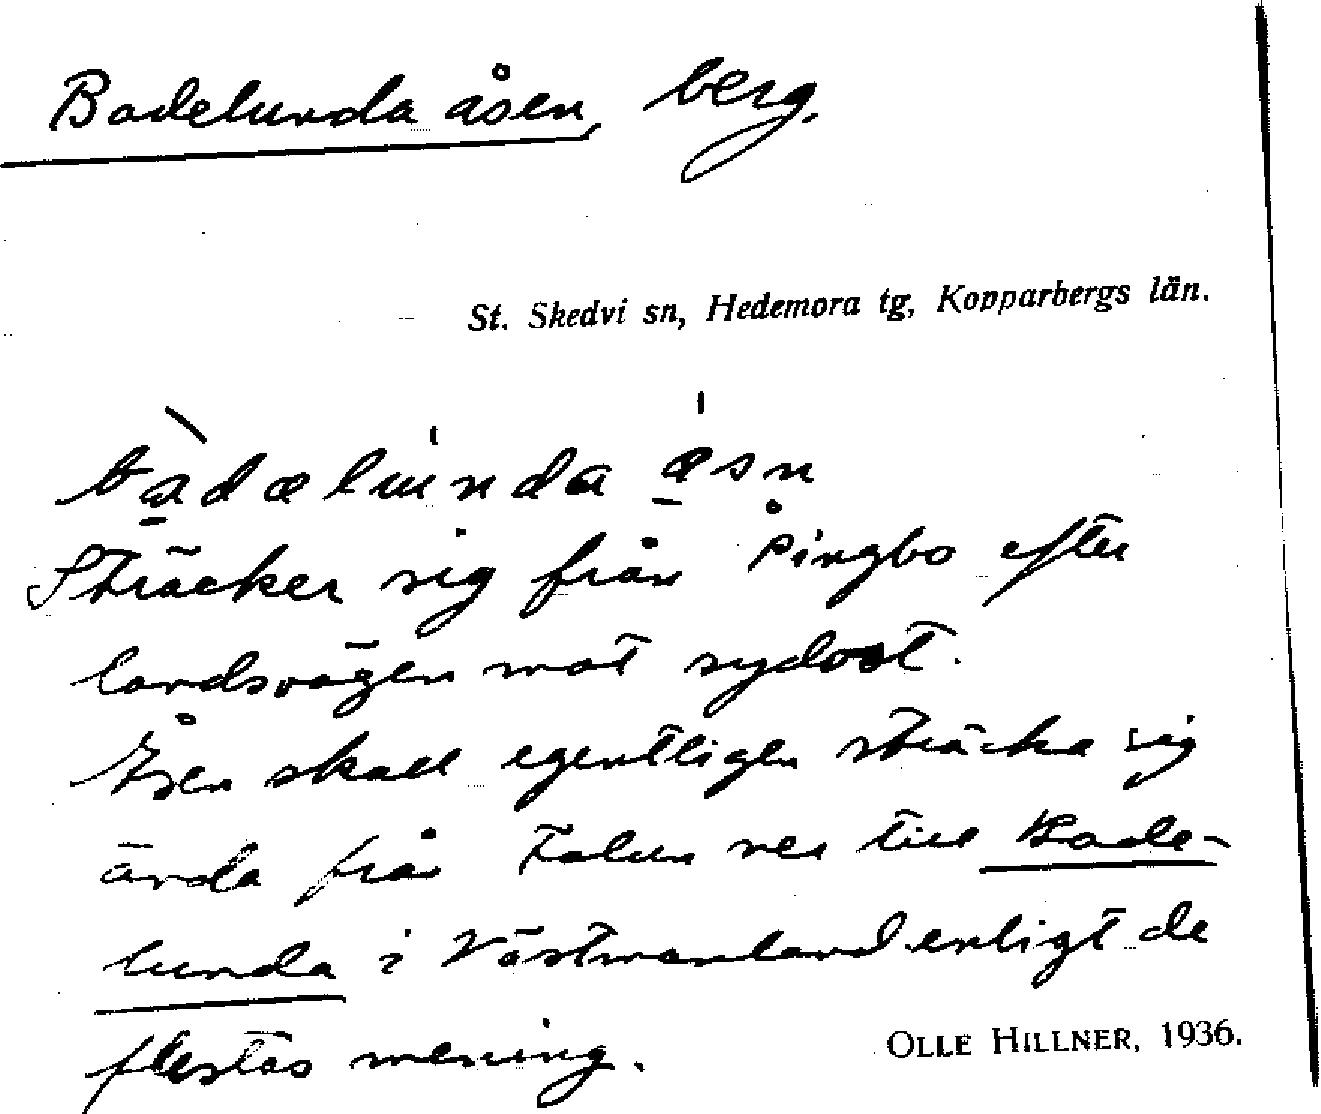 Badelunda åsen, berg.
St. Skedvi sn, Hedemora tg, Kopparbergs län.
bàdælúnda ásn
Sträcker sig från Pingbo efter
landsvägen mot sydost.
Åsen skall egentligen sträcka sig
ända från Falun ner till Bade-
lunda i Västmanland enligt de
flestas mening.
OLLE HILLNER, 1936.